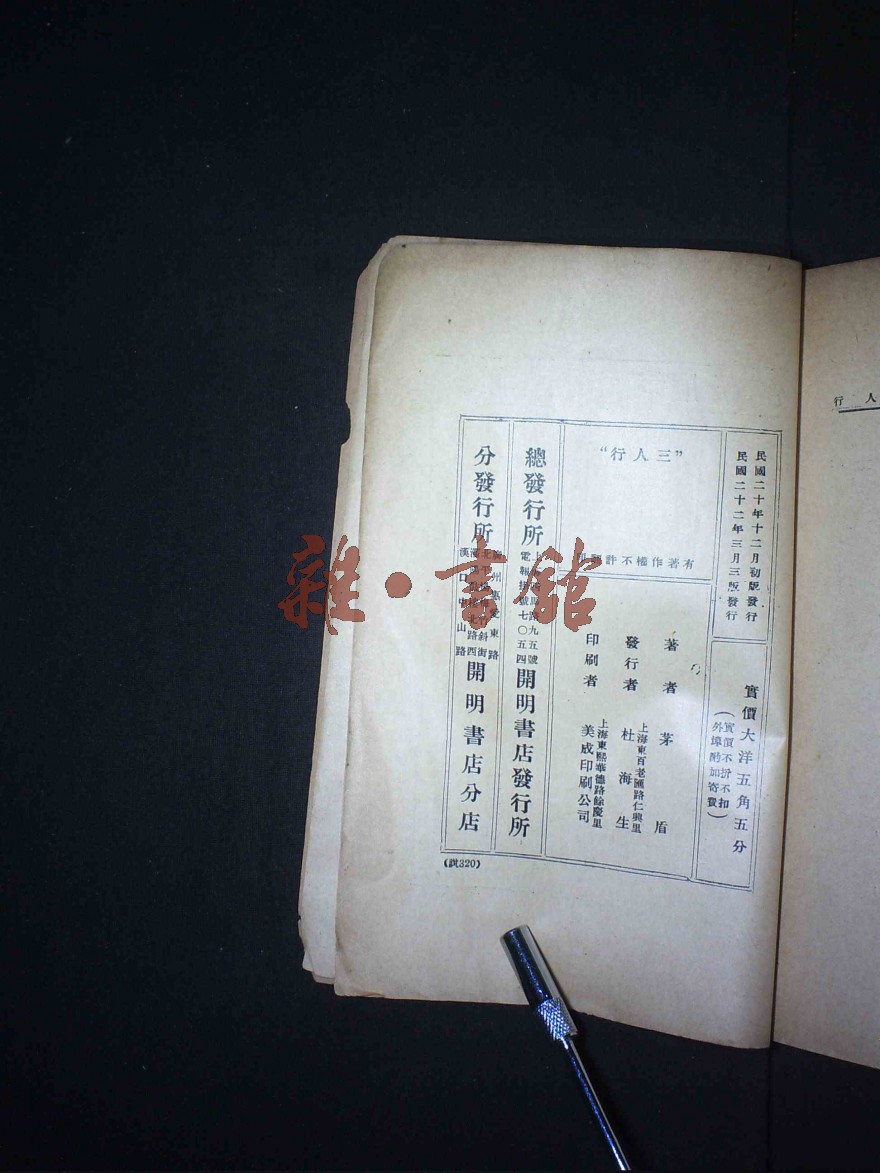 民國二十年十二月初版發行
民國二十二年三月三版發行
實價大洋五角五分
(實價不折不扣
外埠酌加寄費)
“三人行”
有著作權不許翻印
著者 茅盾
發行者 杜海生
上海東百老匯路仁興里
印刷者 美成印刷公司
上海東熙華德路餘慶里
總發行所
上海四馬路九五號
電報掛號七〇五四
開明書店發行所
分發行所
廣州惠愛東路
漢口中山路
開明書店分店
(説320)
人行
雜·書館